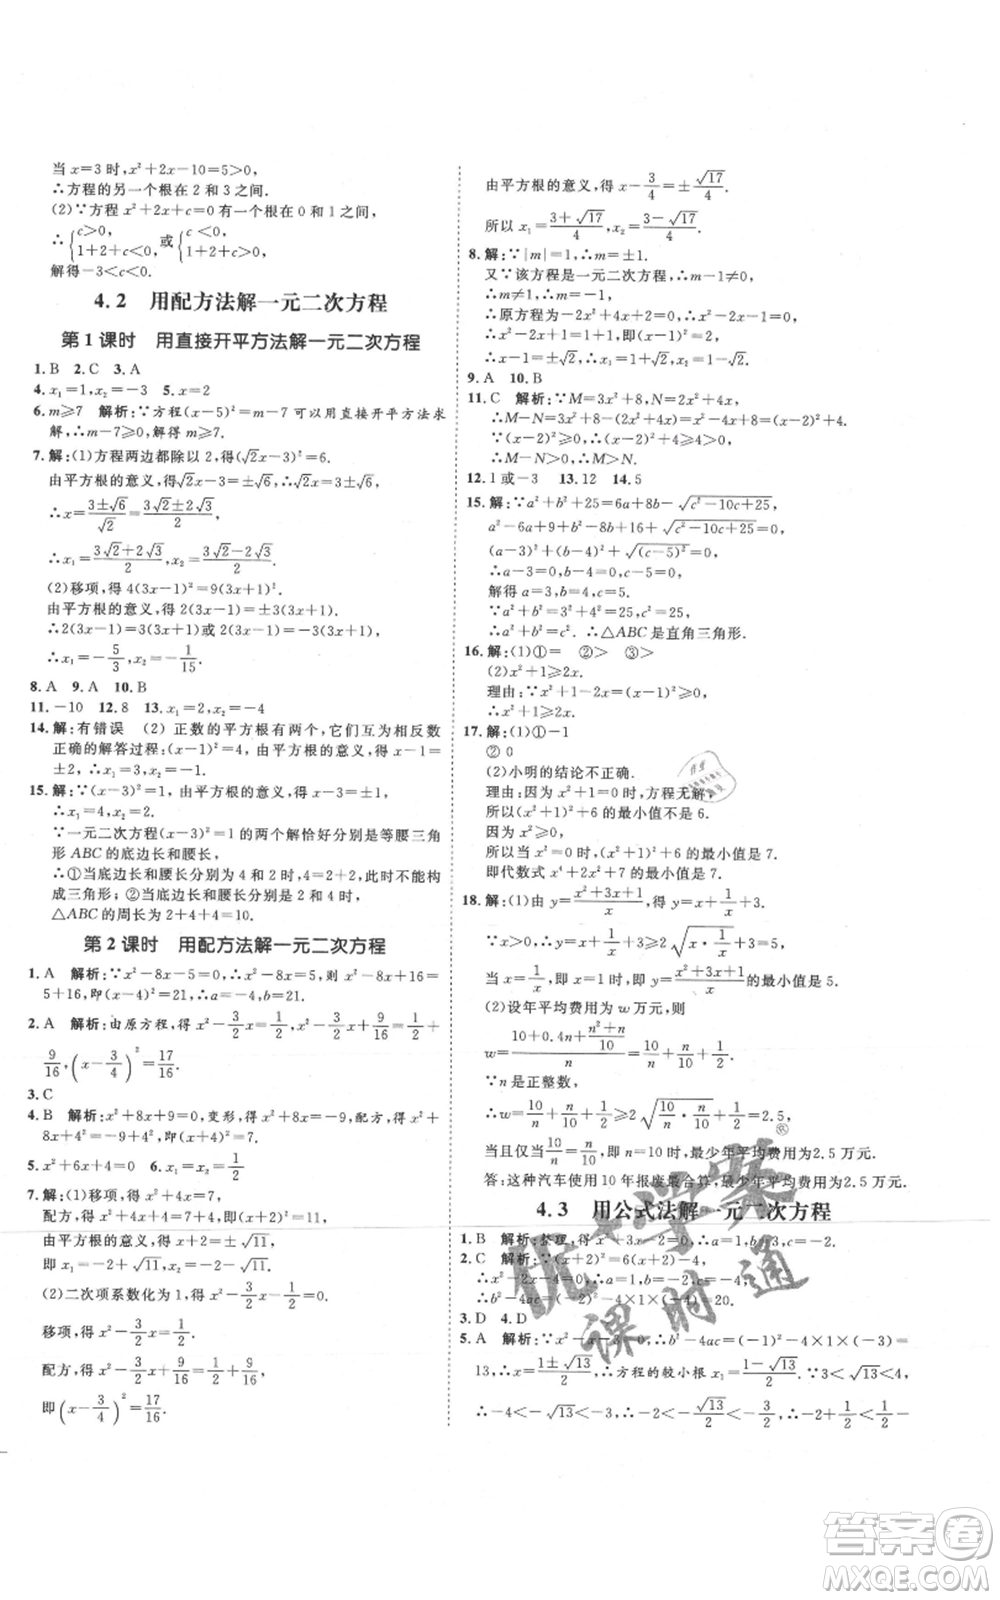 当 x=3 时,x²+2x-10=5>0,
∴方程的另一个根在 2 和 3 之间.
(2)∵方程 x²+2x+c=0 有一个根在 0 和 1 之间,
∴{c>0, 1+2+c<0 或{c<0, 1+2+c>0.
解得-3<c<0.
4.2 用配方法解一元二次方程
第 1 课时 用直接开平方法解一元二次方程
1. B 2. C 3. A
4. x₁=1,x₂=-3 5. x=2
6. m≥7 解析:∵方程(x-5)²=m-7 可以用直接开平方法求
解,∴m-7≥0,解得 m≥7.
7. 解:(1)方程两边都除以 2,得(√2x-3)²=6.
由平方根的意义,得√2x-3=±√6,∴√2x=3±√6,
∴x=(3±√6)/√2=(3√2±2√3)/2,
∴x₁=(3√2+2√3)/2,x₂=(3√2-2√3)/2.
(2)移项,得 4(3x-1)²=9(3x+1)².
由平方根的意义,得 2(3x-1)=±3(3x+1),
∴2(3x-1)=3(3x+1)或 2(3x-1)=-3(3x+1),
∴x₁=-5/3,x₂=-1/15.
8. A 9. A 10. B
11. -10 12. 8 13. x₁=2,x₂=-4
14. 解:有错误 (2) 正数的平方根有两个,它们互为相反数
正确的解答过程:(x-1)²=4,由平方根的意义,得 x-1=
±2,∴x₁=3,x₂=-1.
15. 解:∵(x-3)²=1,由平方根的意义,得 x-3=±1,
∴x₁=4,x₂=2.
∵一元二次方程(x-3)²=1 的两个解恰好分别是等腰三角
形 ABC 的底边长和腰长,
∴①当底边长和腰长分别为 4 和 2 时,4=2+2,此时不能
构成三角形;②当底边长和腰长分别是 2 和 4 时,
△ABC 的周长为 2+4+4=10.
第 2 课时 用配方法解一元二次方程
1. A 解析:∵x²-8x-5=0,∴x²-8x=5,则 x²-8x+16=
5+16,即(x-4)²=21,∴a=-4,b=21.
2. A 解析:由原方程,得 x²-3/2x=1/2,x²-3/2x+9/16=1/2+
9/16,(x-3/4)²=17/16.
3. C
4. B 解析:x²+8x+9=0,变形,得 x²+8x=-9,配方,得 x²+
8x+4²=-9+4²,即(x+4)²=7.
5. x²+6x+2=0 6. x₁=x₂=1/2
7. 解:(1)移项,得 x²+2x=2.
配方,得 x²+2x+1=2+1,即(x+1)²=3.
由此可得 x+1=±√3,
即 x₁=-1+√3,x₂=-1-√3.
(2)二次项系数化为 1,得 x²-3/2x-1/2=0.
移项,得 x²-3/2x=1/2.
配方,得 x²-3/2x+9/16=1/2+9/16,
即(x-3/4)²=17/16.
由平方根的意义,得 x-3/4=±√17/4.
所以 x₁=(3+√17)/4,x₂=(3-√17)/4.
8. 解:∵|m|=1,∴m=±1.
又∵该方程是一元二次方程,∴m-1≠0,
∴m≠1,∴m=-1,
∴原方程为-2x²+4x+2=0,
∴x²-2x=1,∴x²-2x+1=1+1,即(x-1)²=2,
∴x-1=±√2,∴x₁=1+√2,x₂=1-√2.
9. A 10. B
11. C 解析:∵M=3x²+8,N=2x²+4x,
∴M-N=3x²+8-(2x²+4x)=x²-4x+8=(x-2)²+4.
∵(x-2)²≥0,∴M-N≥4>0,∴M>N.
12. 1 或-3 13. 12 14. 5
15. 解:∵a²+b²+25=6a+8b-√(c²-10c+25),
a²-6a+9+b²-8b+16+√(c²-10c+25)=0,
(a-3)²+(b-4)²+√((c-5)²)=0,
∴a-3=0,b-4=0,c-5=0,
解得 a=3,b=4,c=5.
∵a²+b²=3²+4²=25=c²,
∴a²+b²=c². ∴△ABC 是直角三角形.
16. 解:(1)①= ②> ③>
(2)x²+1≥2x.
理由:∵x²+1-2x=(x-1)²≥0,
∴x²+1≥2x.
17. 解:(1)①-1
② 0
(2)小明的结论不正确.
理由:因为 x²+1=0 时,方程无解,
所以(x²+1)²+6 的最小值不是 6.
所以当 x²=0 时,x²+1 的最小值是 1,
所以(x²+1)²+6 的最小值是 7.
即代数式 x⁴+2x²+7 的最小值是 7.
18. 解:(1)由 y=(x²+3x+1)/x,得 y=x+1/x+3.
∵x>0,∴y=x+1/x+3≥2√(x·1/x)+3=5,
当 x=1/x,即 x=1 时,y=(x²+3x+1)/x 的最小值是 5.
(2)设年平均费用为 w 万元,则
w=(10+0.4n+(n²+n)/10)/n=10/n+n/10+1/2.
∵n 是正整数,
∴w=10/n+n/10+1/2≥2√(10/n·n/10)+1/2=2.5,
当且仅当10/n=n/10,即 n=10 时,最少年平均费用为2.5 万元.
答:这种汽车使用 10 年报废最合算,最少年平均费用为2.5 万元.
4.3 用公式法解一元二次方程
1. B 解析:整理,得 x²+3x-2=0,∴a=1,b=3,c=-2.
2. C 解析:∵(x+2)²=6(x+2)-4,
∴x²-2x-4=0,∴a=1,b=-2,c=-4,
∴b²-4ac=(-2)²-4×1×(-4)=4+16=20.
3. D 4. D
5. A 解析:∵x²-x-3=0,∴b²-4ac=(-1)²-4×1×(-3)=
13,∴x=(1±√13)/2,∴方程的较小根 x₁=(1-√13)/2. ∵3<√13<4,
∴-4<-√13<-3,∴-2<-√13/2<-3/2,∴-2+1/2<-
优+学案
课时通
®
作业
答案卷